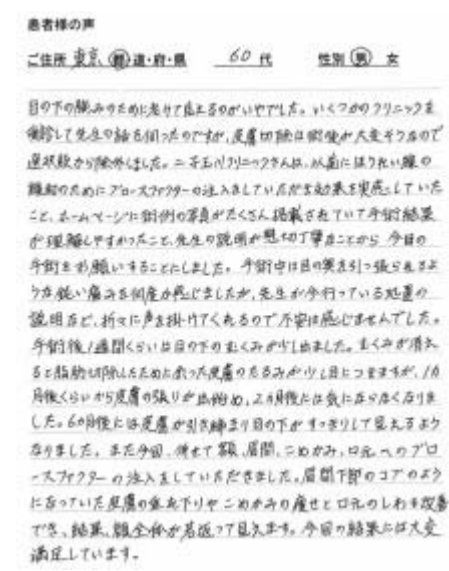 患者様の声
ご住所 東京 都・道・府・県 60代 性別 男 女
目の下の膨みのために老けて見えるのがいやでした。いくつかのクリニックを
受診して先生の話を伺ったのですが、皮膚切除は術後が大変そうなので
選択肢から除外しました。二子玉川クリニックさんは、以前にほうれい線の
ためにグロースファクターの注入をしていただき効果を実感していた
こと、ホームページに術例の写真がたくさん掲載されていて手術結果
が理解しやすかったこと、先生の説明が懇切丁寧なことから今回の
手術をお願いすることにしました。手術中は目の奥を引っ張られるよ
うな鈍い痛みを何度か感じましたが、先生が今行っている処置の
説明など、折々に声を掛けてくれるので不安は感じませんでした。
手術後1週間くらいは目の下のむくみが少し出ました。むくみが消え
ると脂肪切除したために余った皮膚のたるみが少し目につきますが、1カ
月後くらいから皮膚の張りが出始め、2カ月後には気にならなくなりま
した。6カ月後には皮膚が引き締まり目の下がすっきりして見えるよう
なりました。また今回、併せて額、眉間、こめかみ、口元へのグロ
ースファクターの注入をしていただきました。眉間下部のコブのよう
になっていた皮膚の垂れ下りやこめかみの痩せと口元のしわも改善
でき、結果、顔全体が若返って見えます。今回の結果には大変
満足しています。